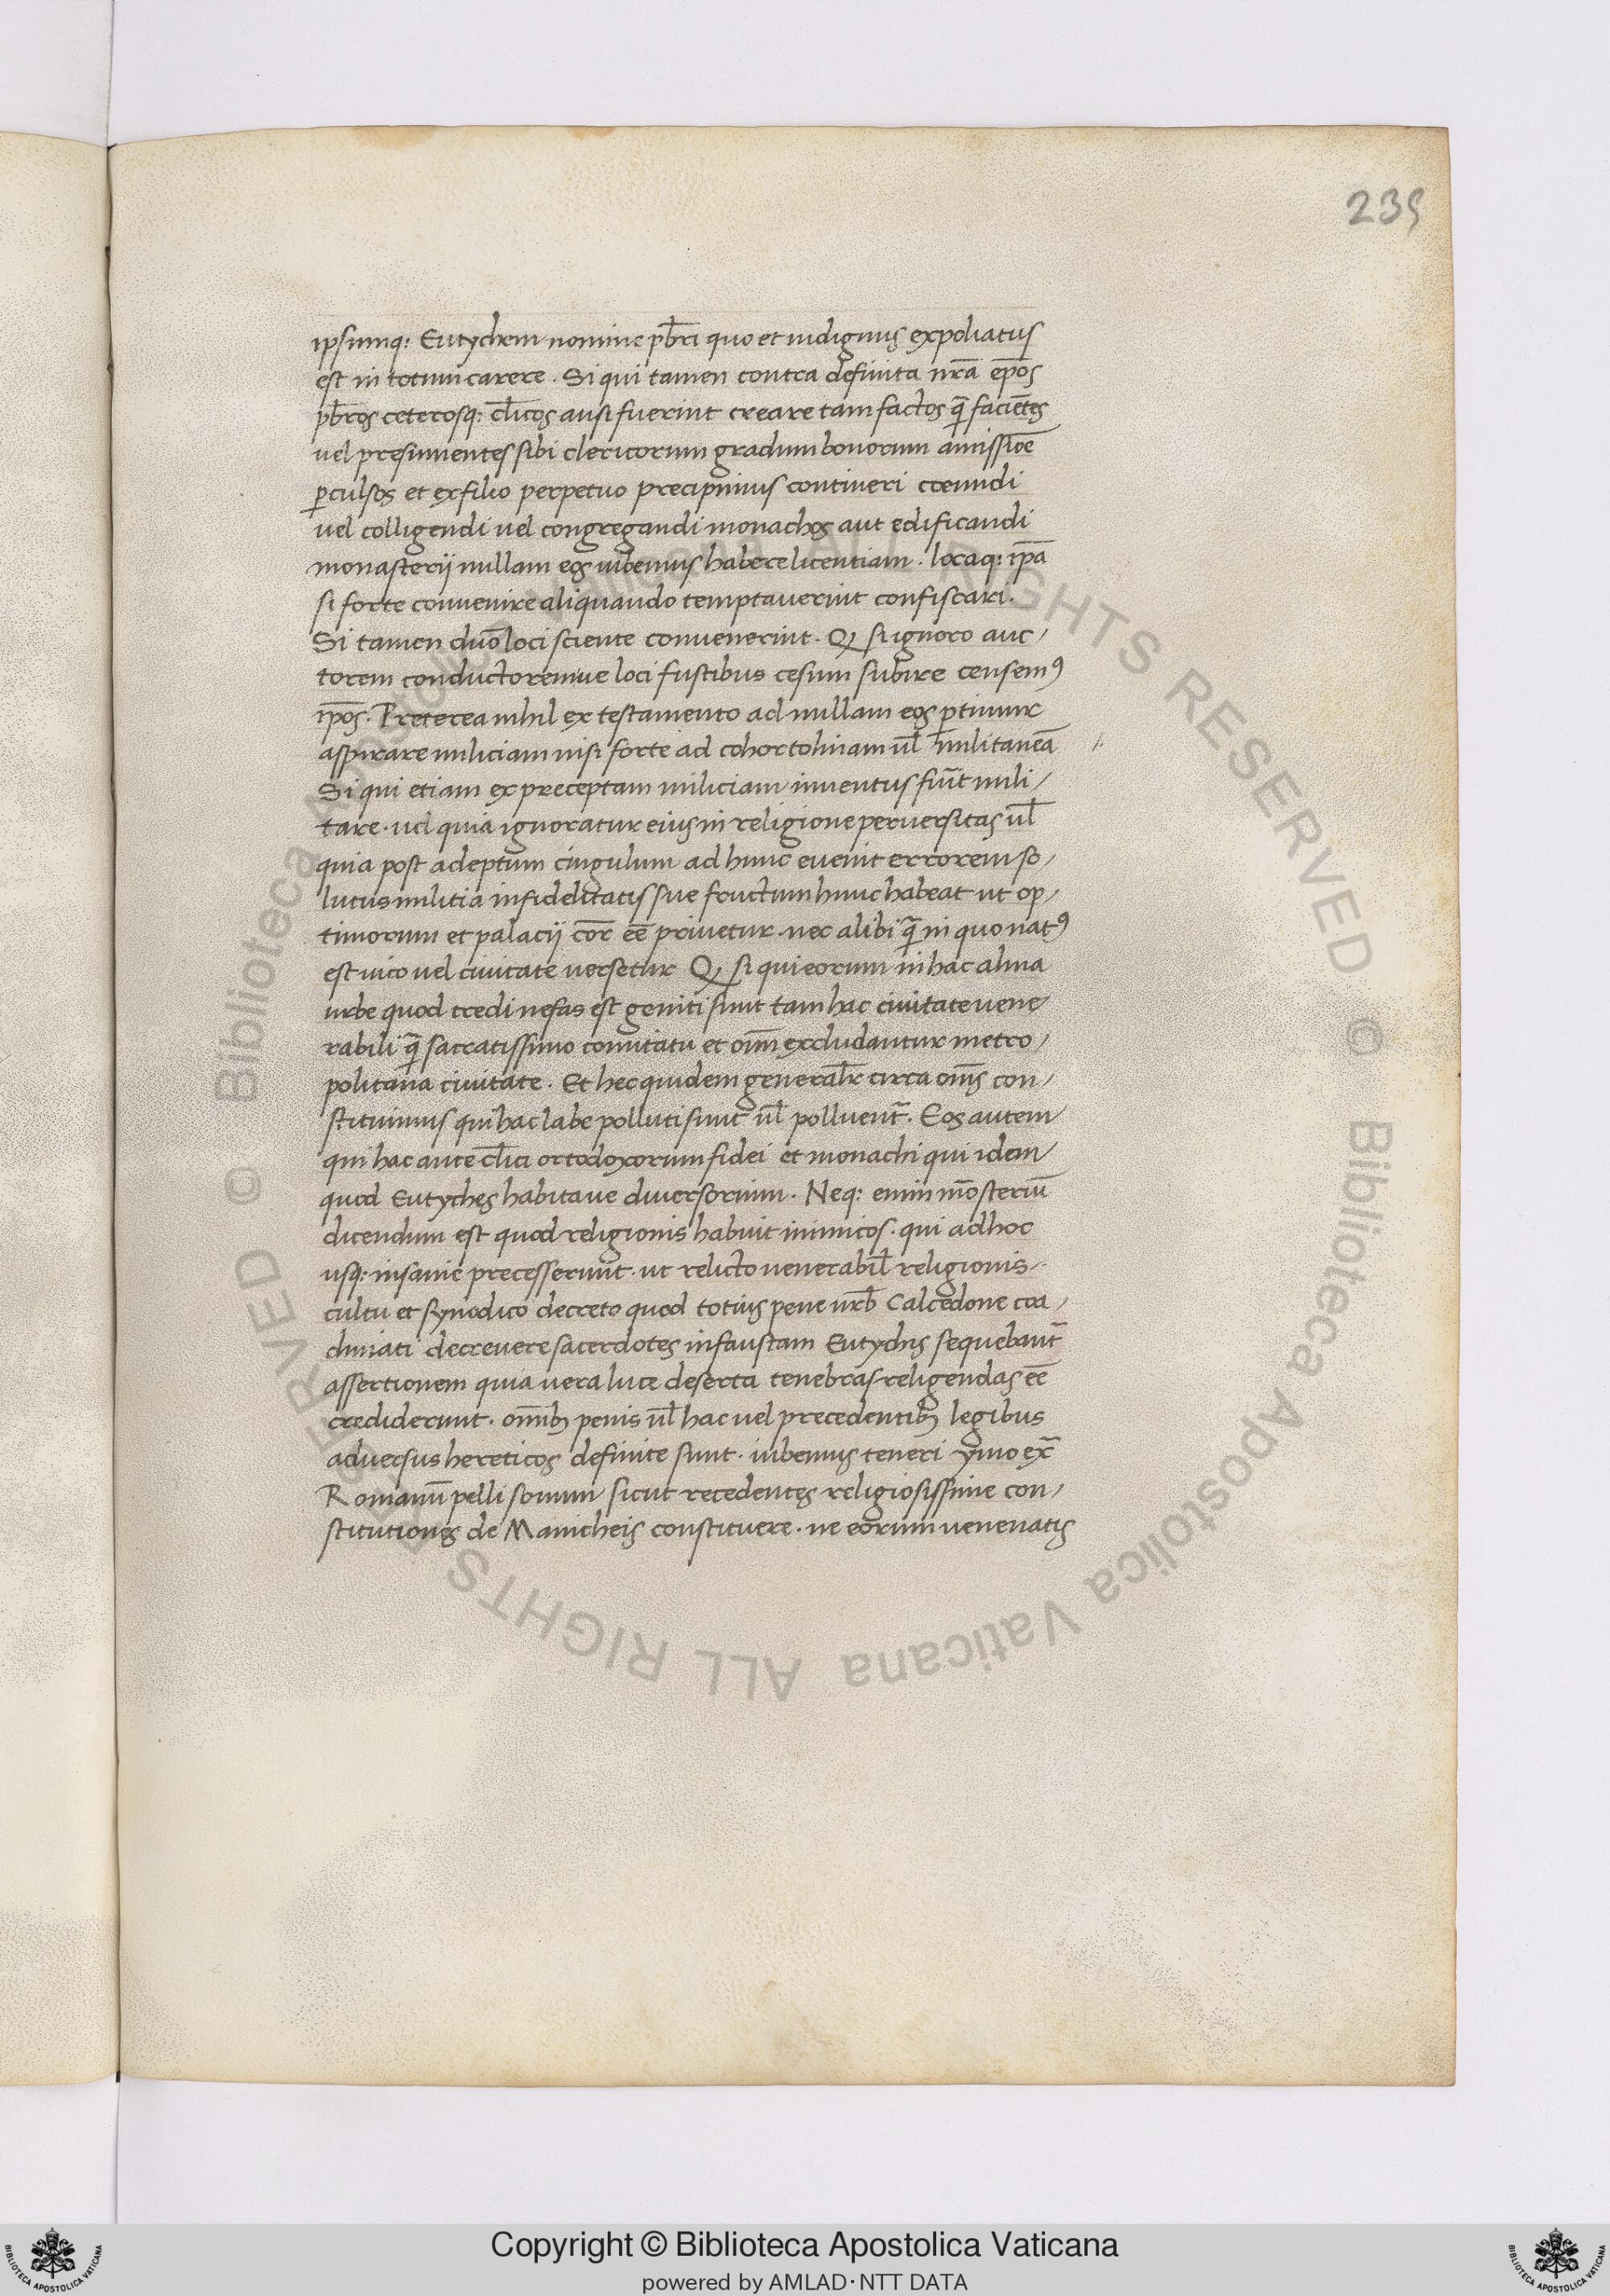 239
ipsumq: Eutychem nomine pb̄ri quo et indignus expoliatus
est in totum carere. Si qui tamen contra definita nr̄a ep̄os
pb̄ros ceterosq: cl̄icos ausi fuerint creare tam factos q̄ faciētes
vel presumentes sibi clericorum gradum bonorum amissiōe
ꝑculsos et exsilio perpetuo precipimus contineri coeundi
vel colligendi vel congregandi monachos aut edificandi
monasterij nullam eos iubemus habere licentiam. locaq: ip̄a
si forte convenire aliquando temptaverint confiscari.
Si tamen duo loci sciente convenerint. Q, si ignoro auc/
torem conductoremve loci fustibus cesum subire censemꝰ
ip̄os. Preterea nihil ex testamento ad nullam eos ꝑtinunc
aspirare miliciam nisi forte ad cohortolinam ul̄ militaneā
Si qui etiam ex preceptam miliciam inventus fuīt mili/
tare. vel quia ignoratur eius in religione perversitas ul̄
quia post adeptum cingulum ad hunc evenit errorem so/
lutus militia infidelitatis sue fructum hunc habeat ut op/
timorum et palacij cōr eē privetur. nec alibi q̄ in quo natꝰ
est vico vel civitate versetur Q, si qui eorum in hac alma
urbe quod credi nefas est geniti sunt tam hac civitate vene/
rabili q̄ sacratissimo comitatu et om̄i excludantur metro/
politana civitate. Et hec quidem general̄r circa om̄s con/
stituimus qui hac labe polluti sunt ul̄ polluent̄. Eos autem
qui hac ante cl̄ici ortodoxorum fidei et monachi qui idem
quod Eutyches habitave diversorium. Neq: enim mōsteriū
dicendum est quod religionis habuit inimicos. qui adhoc
usq: insanie precesserunt. ut relicto venerabil̄ religionis
cultu et synodico decreto quod totius pene urb̄ Calcedone coa/
dunati decrevere sacerdotes infaustam Eutychis sequebant̄
assertionem quia vera luce deserta tenebras religendas eē
crediderunt. om̄ib; penis ul̄ hac vel precedentib; legibus
adversus hereticos definite sunt. iubemus teneri ymo ex̄
Romanū pelli somum sicut recedentes religiosissime con/
stitutiones de Manicheis constituere. ne eorum venenatis
© Biblioteca Apostolica Vaticana ALL RIGHTS RESERVED
© Biblioteca Apostolica Vaticana ALL RIGHTS RESERVED
Copyright © Biblioteca Apostolica Vaticana
powered by AMLAD·NTT DATA
BIBLIOTECA APOSTOLICA VATICANA
BIBLIOTECA APOSTOLICA VATICANA